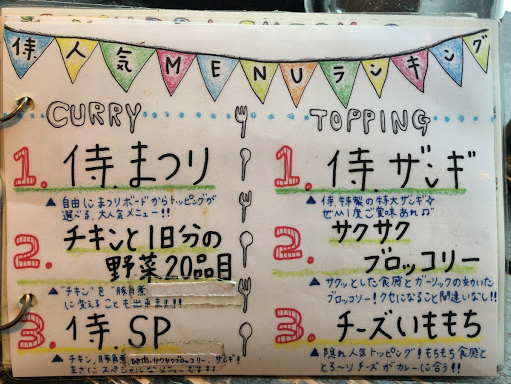 侍人気MENUランキング
CURRY
1. 侍.まつり
▲自由にまつりボードからトッピングが
選べる、大人気メニュー!!
2. チキンと1日分の
野菜20品目
▲"チキン"を"豚角煮"
に変えることも出来ます!!
3. 侍.SP
▲チキン、豚角煮、サクサクブロッコリー、ザンギ!
まさにスペシャルなメニューです!!
TOPPING
1. 侍.ザンギ
▲侍.特製の特大ザンギ☆
ぜひ1度ご賞味あれ♫
2. サクサク
ブロッコリー
▲サクッとした食感とガーリックの効いた
ブロッコリー!クセになること間違いなし!!
3. チーズいももち
▲隠れ人気トッピング!もちもち食感と
とろ〜りチーズがカレーに合う!!